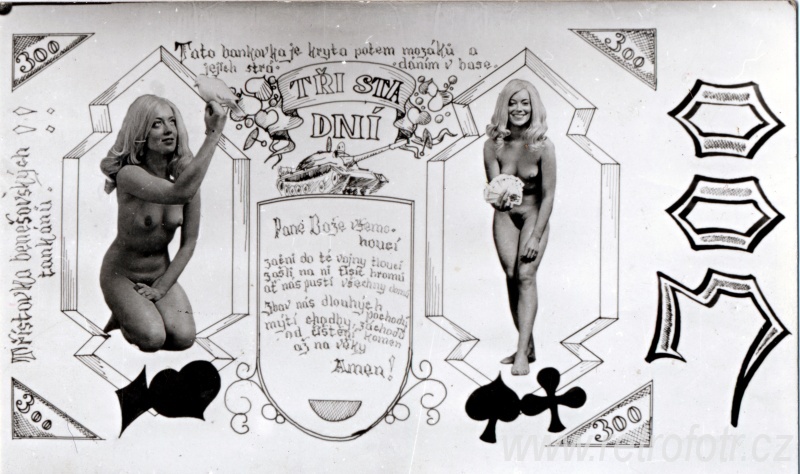 300
300
Tato bankovka je kryta potem mozáků a
jejich strá- -dáním v base.
TŘI STA
DNÍ
benešovských
tankánů.
Pane Bože všemo-
houcí
zatni do té vojny tloucí
zašli na ní tisíc hromů
ať nás pustí všechny domů
Zbav nás dlouhých
pochodů
mytí chodby, záchodů
od čištění kamen
až na věky
Amen!
300
300
300
www.retrofotr.cz